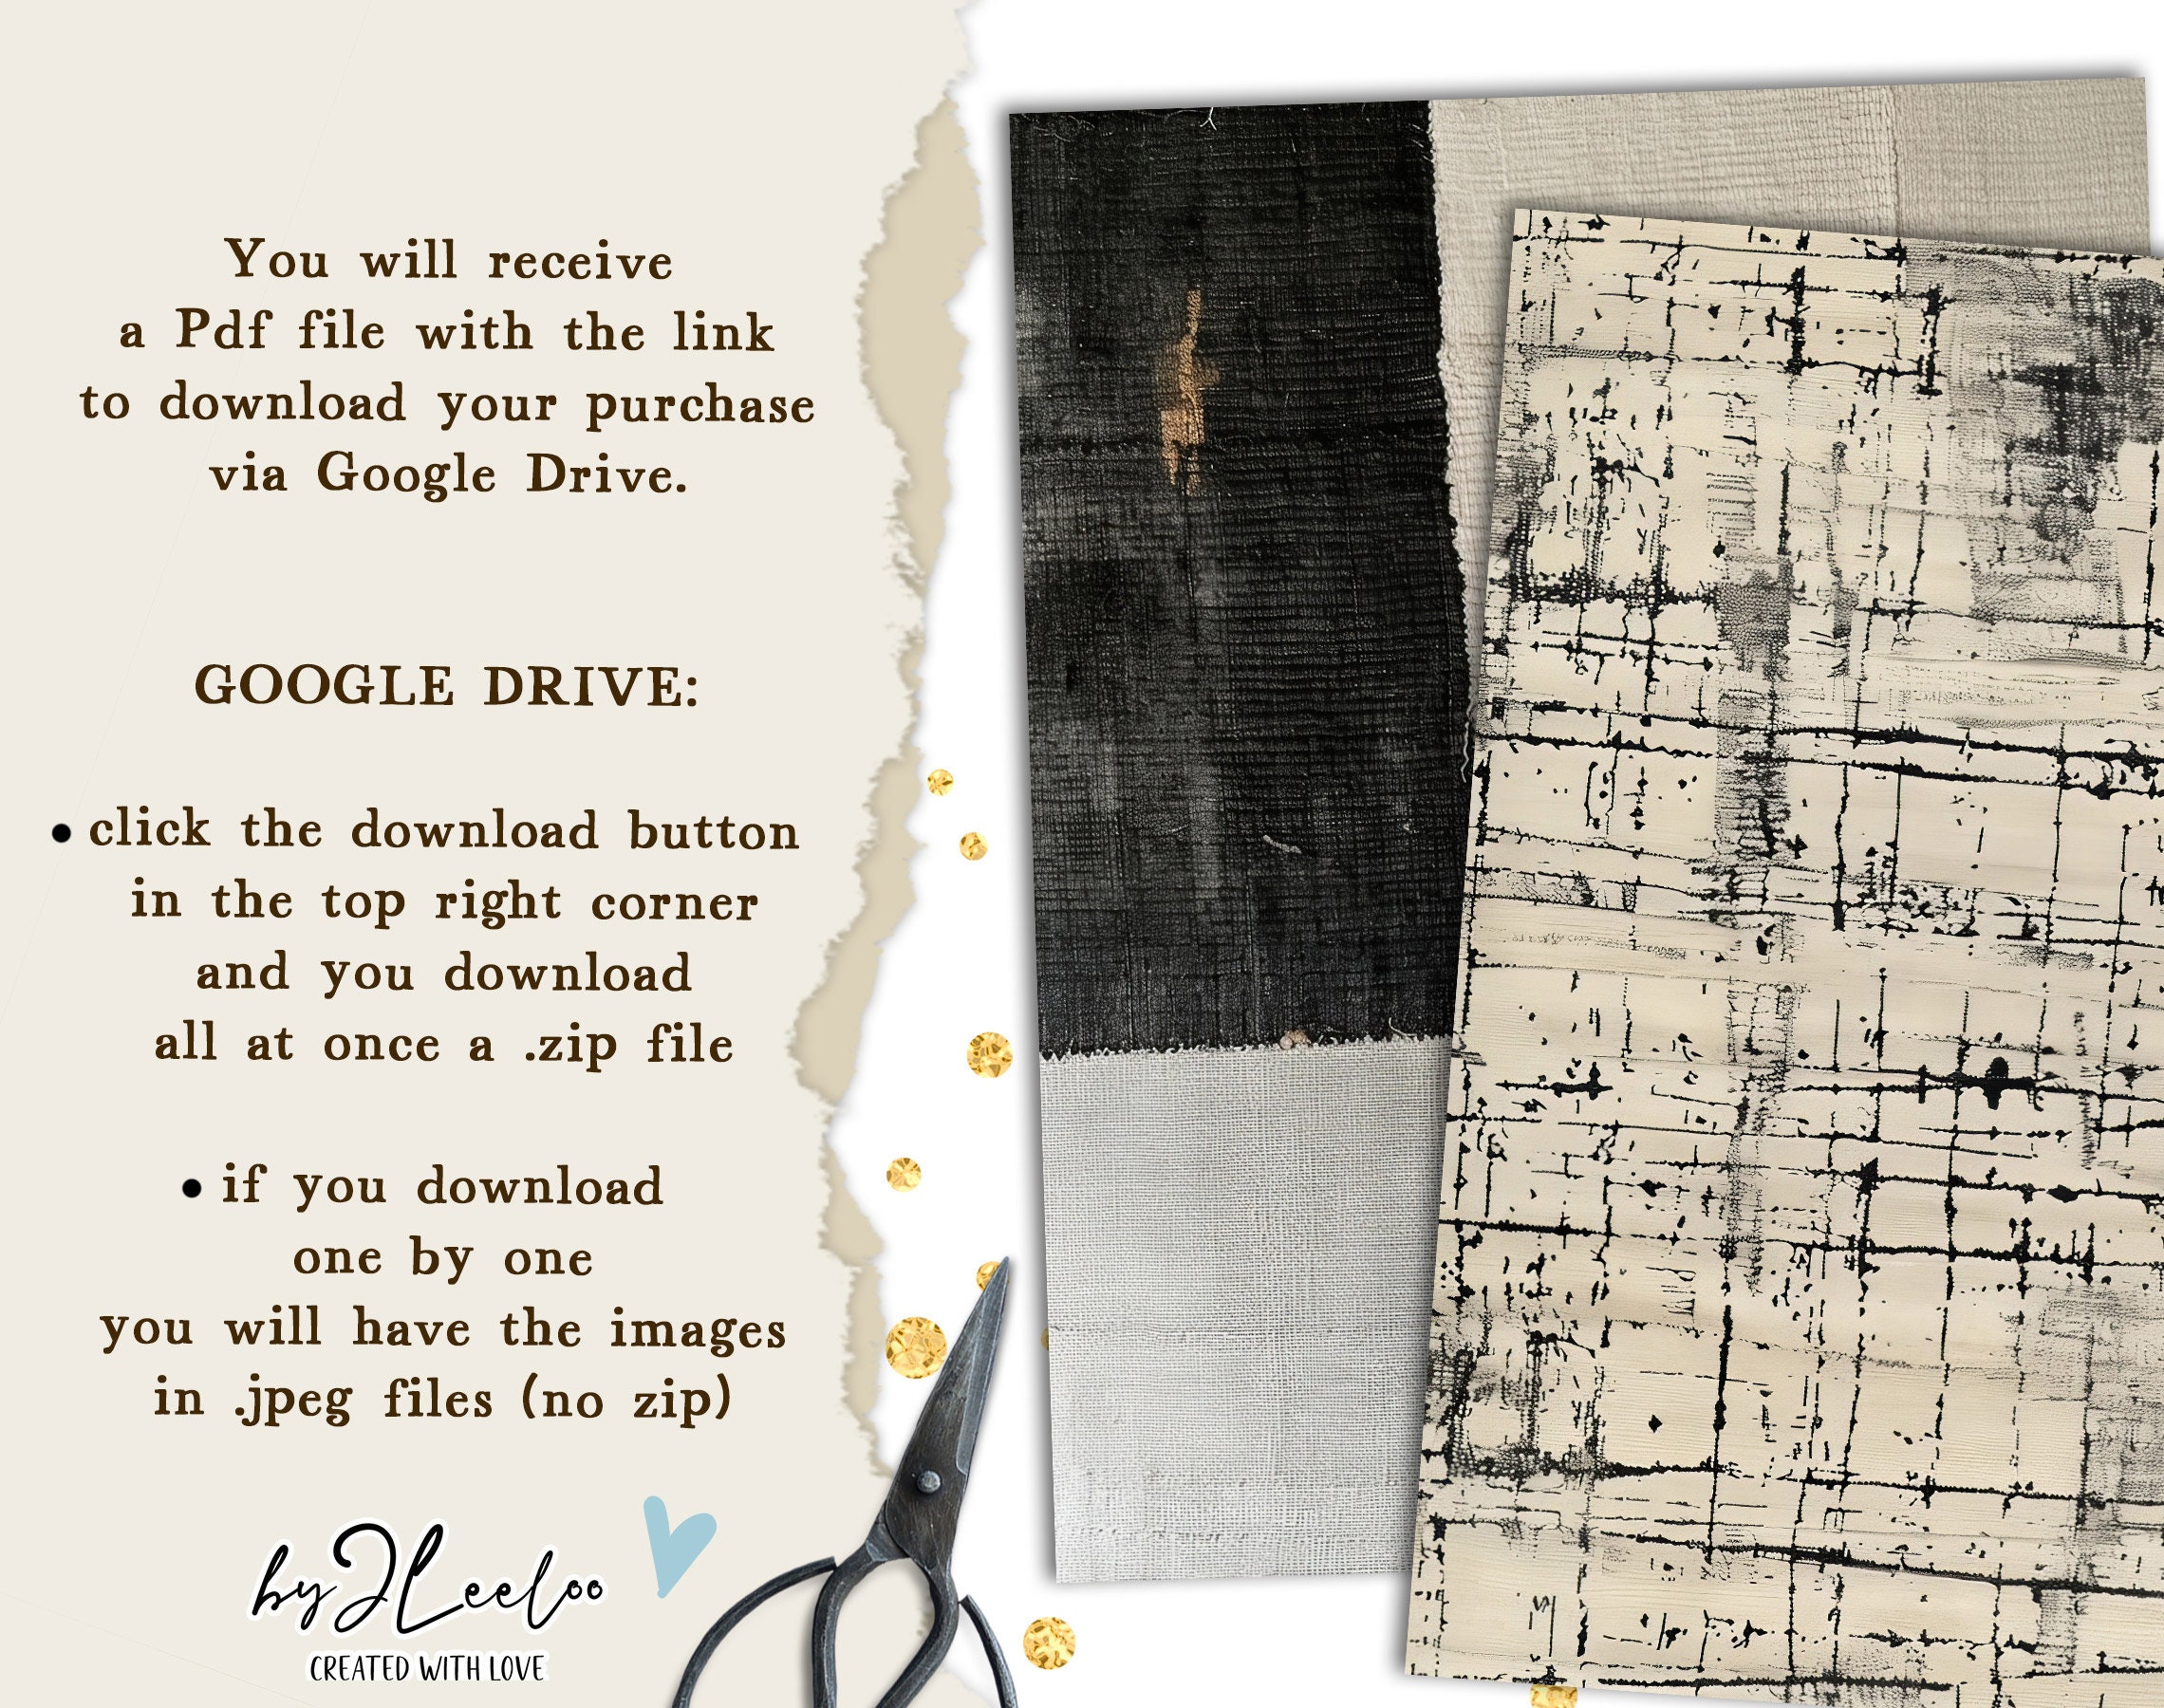 You will receive
a Pdf file with the link
to download your purchase
via Google Drive.
GOOGLE DRIVE:
• click the download button
in the top right corner
and you download
all at once a .zip file
• if you download
one by one
you will have the images
in .jpeg files (no zip)
byJLeeloo
CREATED WITH LOVE